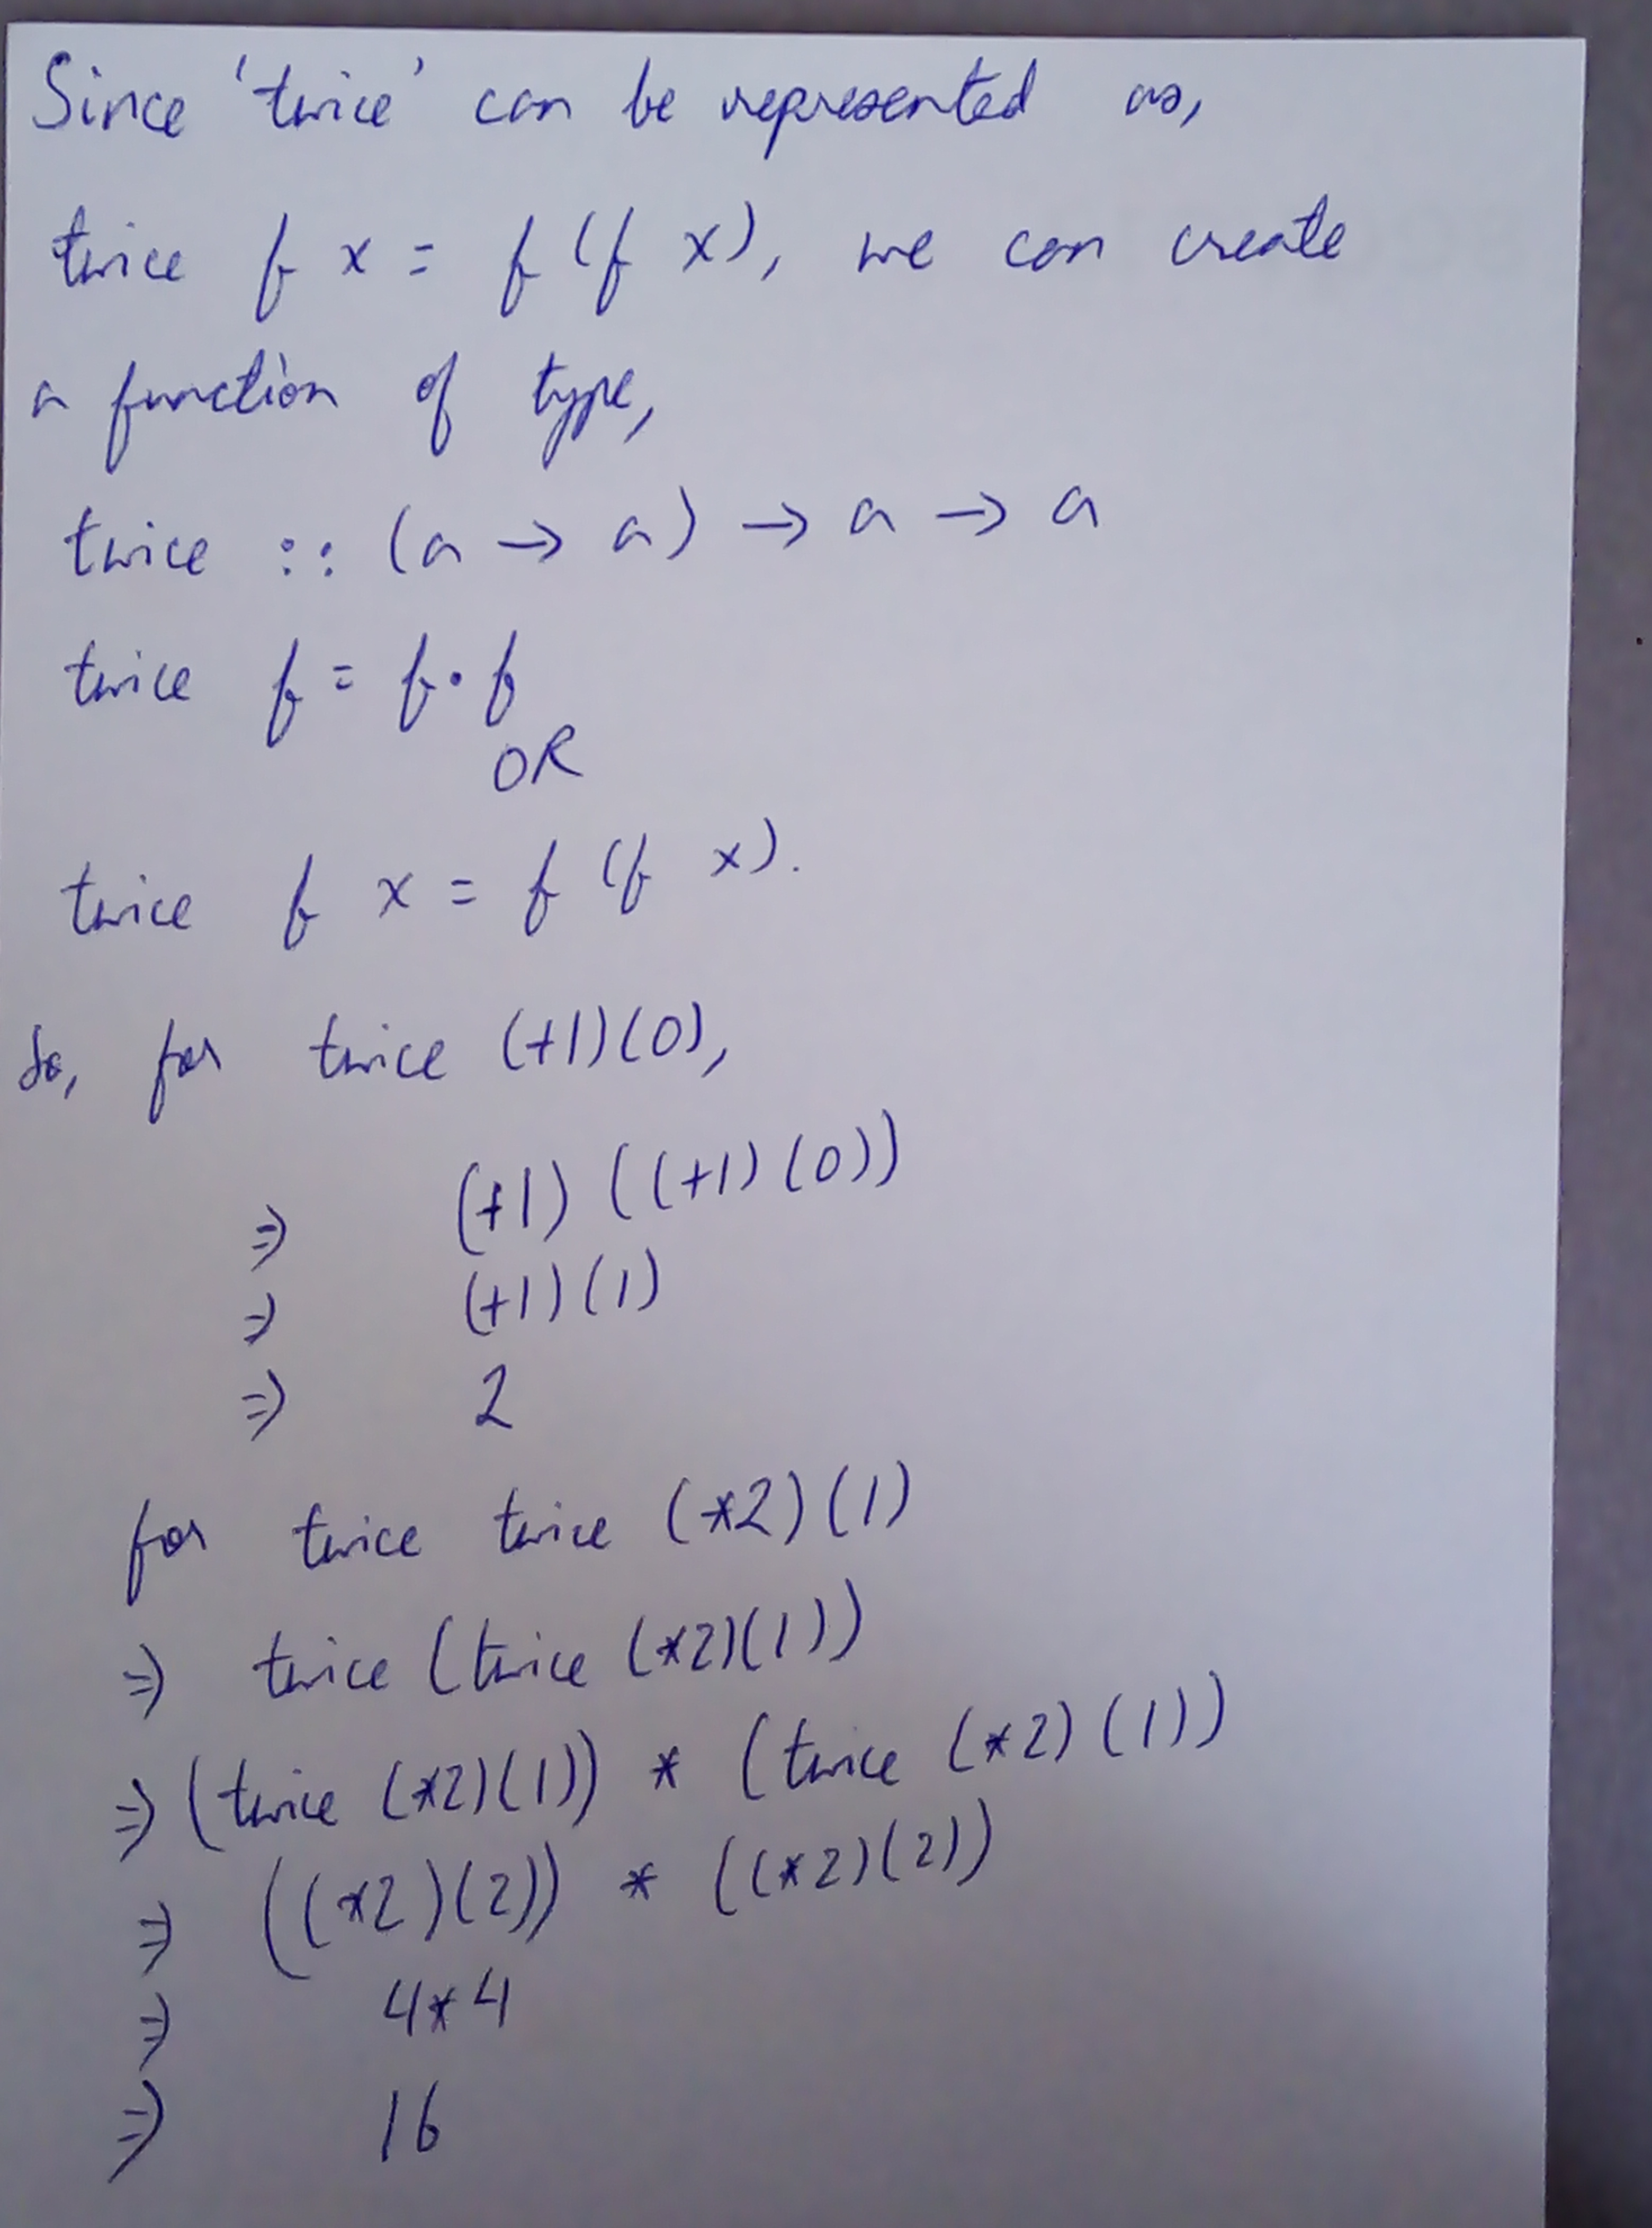 Since 'twice' can be represented as,
twice f x = f (f x), we can create
a function of type,
twice :: (a → a) → a → a
twice f = f • f
OR
twice f x = f (f x).
So, for twice (+1)(0),
⇒ (+1) ((+1) (0))
⇒ (+1) (1)
⇒ 2
for twice twice (*2) (1)
⇒ twice (twice (*2)(1))
⇒ (twice (*2)(1)) * (twice (*2) (1))
⇒ ((*2)(2)) * ((*2)(2))
⇒ 4*4
⇒ 16